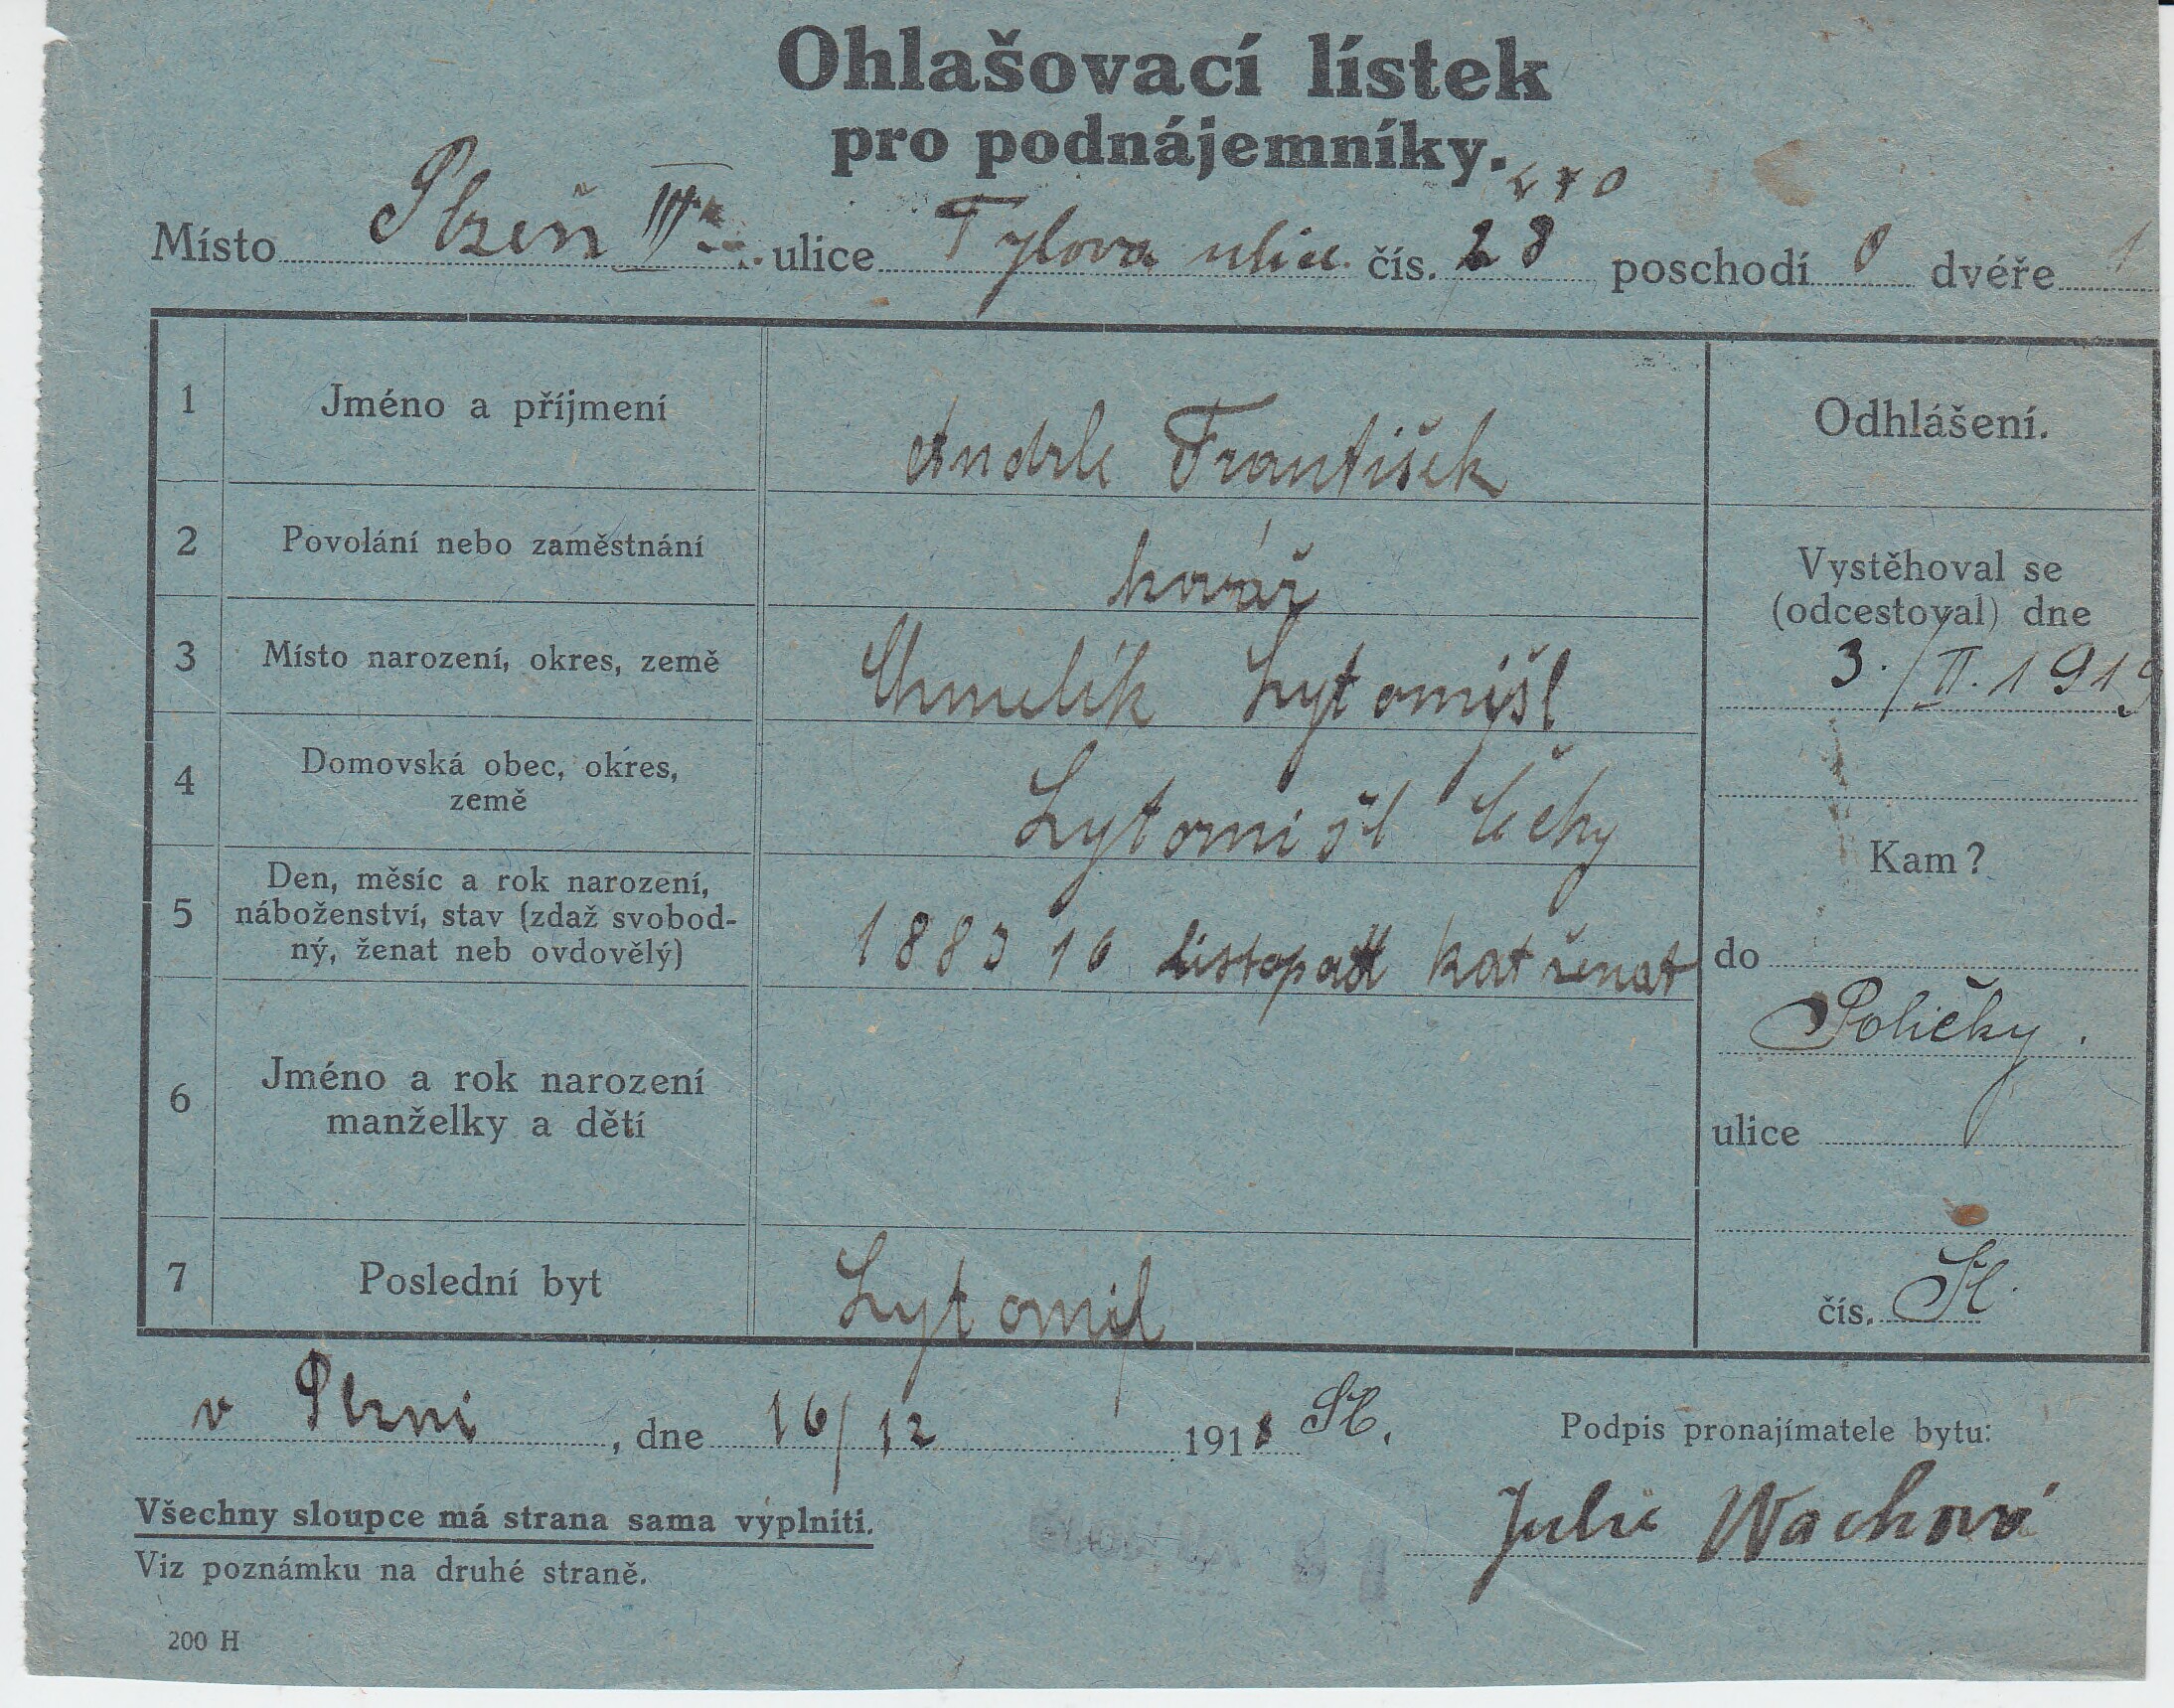 Ohlašovací lístek
pro podnájemníky.
Místo Plzeň III ulice Tylova ulice čís. 28 poschodí 0 dvéře 1
1 Jméno a příjmení Andrle František
Odhlášení.
2 Povolání nebo zaměstnání kovář
Vystěhoval se
(odcestoval) dne
3./II. 1919
3 Místo narození, okres, země Chmelík Lytomyšl
4 Domovská obec, okres,
země
Lytomišl Čéhy
Kam?
5 Den, měsíc a rok narození,
náboženství, stav (zdaž svobod-
ný, ženat neb ovdovělý)
1883 16 listopad kat ženat
do
Poličky.
6 Jméno a rok narození
manželky a dětí
ulice
7 Poslední byt Lytomišl
čís.
v Plzni, dne 16/12 1918
Podpis pronajímatele bytu:
Julie Wachová
Všechny sloupce má strana sama vyplniti.
Viz poznámku na druhé straně.
200 H